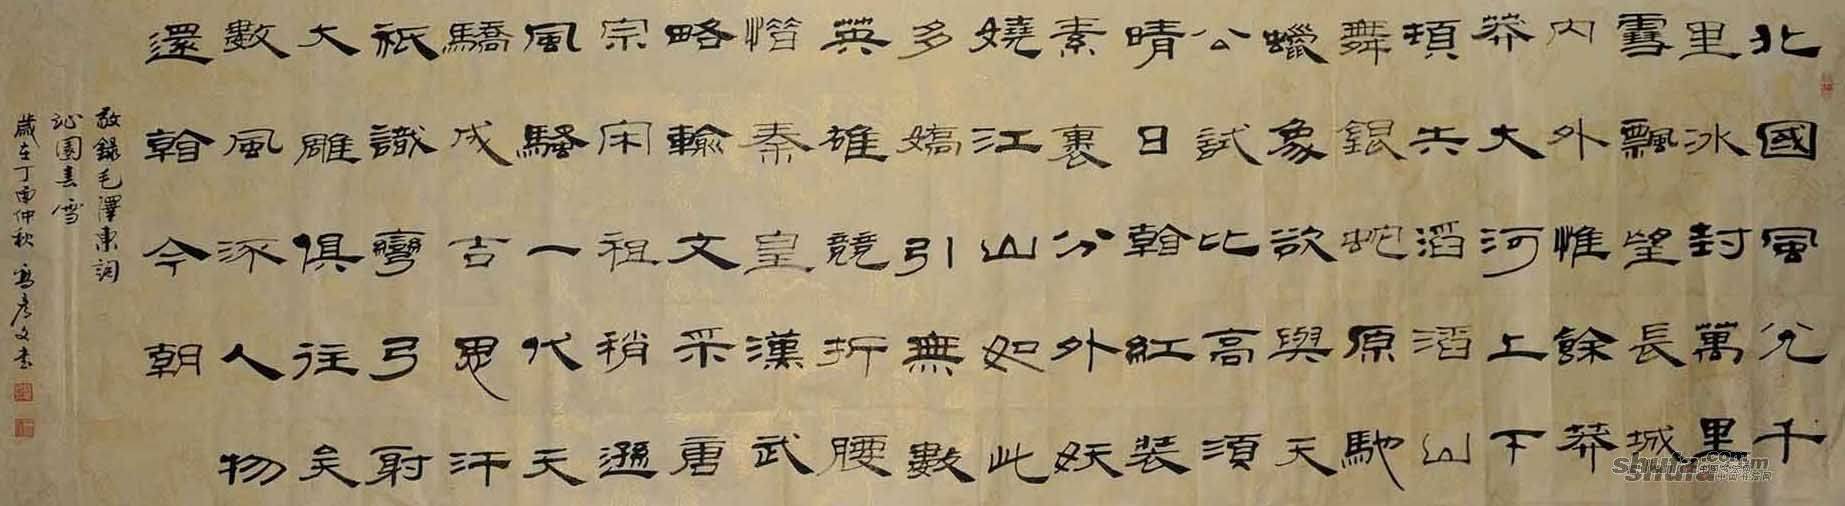 北國風光千
里冰封萬里
雪飄望長城
內外惟餘莽
莽大河上下
頓失滔滔山
舞銀蛇原馳
蠟象欲與天
公試比高須
晴日看紅裝
素裹分外妖
嬈江山如此
多嬌引無數
英雄競折腰
惜秦皇漢武
略輸文采唐
宗宋祖稍遜
風騷一代天
驕成吉思汗
祇識彎弓射
大雕俱往矣
數風流人物
還看今朝
敬錄毛澤東詞
沁園春雪
歲在丁酉仲秋 彥文書